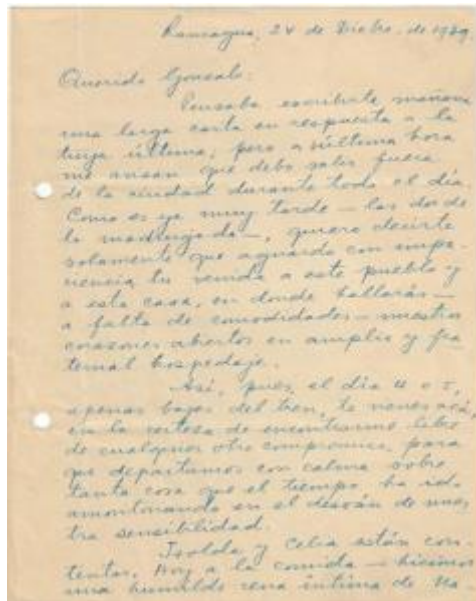 Rancagua, 24 de Dicbre. de 1939.
Querido Gonzalo:
Pensaba escribirte mañana
una larga carta en respuesta a la
tuya última, pero a última hora
me avisan que debo salir fuera
de la ciudad durante todo el día.
Como es ya muy tarde — las dos de
la madrugada —, quiero decirte
solamente que aguardo con impa
ciencia tu venida a este pueblo y
a esta casa, en donde hallarás —
a falta de comodidades — nuestros
corazones abiertos en amplio y fra
ternal hospedaje.
Así, pues, el día 4 o 5,
apenas bajes del tren, te vienes acá,
en la certeza de encontrarme libre
de cualquier otro compromiso, para
que departamos con calma sobre
tanta cosa que el tiempo ha ido
amontonando en el desván de nues
tra sensibilidad.
Isolda y Celia están con-
tentas. Hoy a la comida — hicimos
una humilde cena íntima de Na